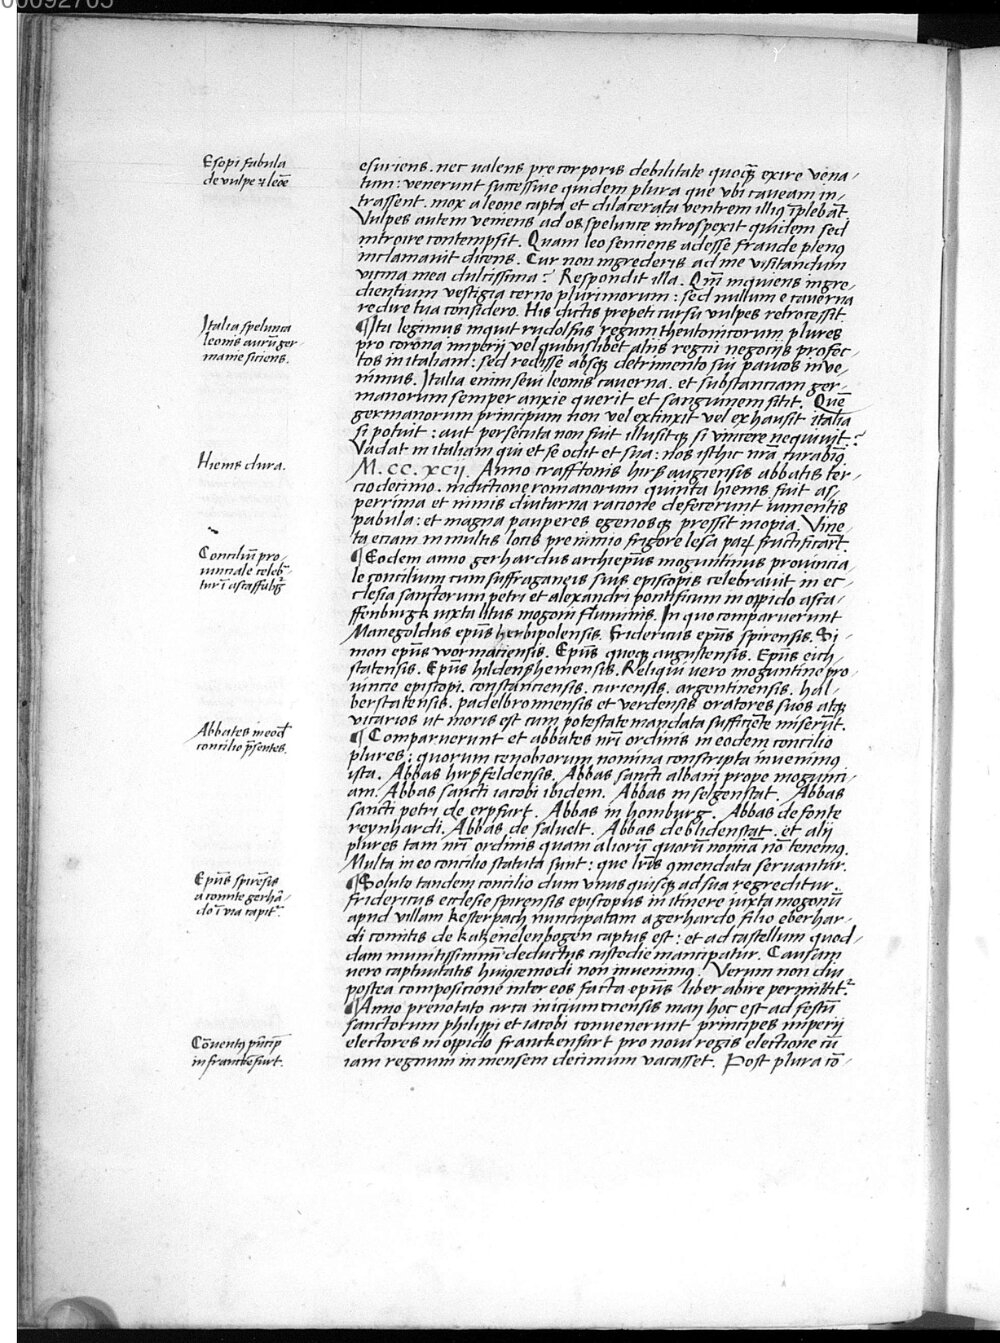 00092705
Esopi fabula
de vulpe ⁊ leōe
esuriens. nec ualens pre corporis debilitate quoqꝫ exire vena-
tum: venerunt successiue quidem plura que vbi caueam in-
trassent. mox a leone capta et dilacerata ventrem illiꝰ īplebāt.
Vulpes autem veniens ad os spelunce introspexit quidem sed
introire contempsit. Quam leo sentiens adesse fraude plenꝰ
inclamauit dicens. Cur non ingrederis ad me visitandum
vicina mea dulcissima? Respondit illa. Qm̄ inquiens ingre-
dientium vestigia cerno plurimorum: sed nullum e cauerna
redire tua considero. His dictis prepeti cursu vulpes retrocessit.
Italia spelunca
leonis aurū ger-
manie siciens.
¶Ita legimus inquit rudolfus regum theutonicorum plures
pro corona imperij vel quibuslibet alijs regni negocijs profec-
tos in italiam: sed redisse absqꝫ detrimento sui paucos inue-
nimus. Italia enim seui leonis cauerna. et substanciam ger-
manorum semper anxie querit et sanguinem sitit. Quē
germanorum principum non vel extinxit vel exhausit italia
si potuit: aut persecuta non fuit illusitqꝫ si vincere nequiuit?
Vadat in italiam qui et se odit et sua: nos isthic nr̄a curabimꝰ.
Hiems dura.
M.CC.XCII. Anno crafftonis hirßaugiensis abbatis ter-
ciodecimo. indictione romanorum quinta hiems fuit as-
perrima et nimis diuturna ratione defecerunt iumentis
pabula: et magna pauperes egenosqꝫ pressit inopia. Vine-
ta eciam in multis locis pre nimio frigore lesa parū fructificarūt.
Conciliū pro-
uinciale celeb-
tur ī ascaffubg̃
¶Eodem anno gerhardus archiep̄us moguntinus prouincia-
le concilium cum suffraganeis suis episcopis celebrauit in ec-
clesia sanctorum petri et alexandri pontificum in oppido asca-
ffenburgk iuxta litus mogoni fluminis. In quo comparuerunt
Manegoldus ep̄us herbipolensis. Fridericus ep̄us spirensis. Si-
mon ep̄us wormaciensis. Ep̄us queqꝫ augustensis. Ep̄us eich-
statensis. Ep̄us hildenshemensis. Reliqui uero moguntine pro-
uincie episcopi. constanciensis. curiensis. argentinensis. hal-
berstatensis. padelbronnensis et verdensis oratores suos atqꝫ
vicarios ut moris est cum potestate mandata sufficiēte miserūt.
Abbates in eod̄
concilio p̄sentes.
¶Comparuerunt et abbates nr̄i ordinis in eodem concilio
plures: quorum cenobiorum nomina conscripta inuenimꝰ
ista. Abbas hirßfeldensis. Abbas sancti albani prope mogunci-
am. Abbas sancti iacobi ibidem. Abbas in selgenstat. Abbas
sancti petri de erpfurt. Abbas in homburg. Abbas de fonte
reynhardi. Abbas de saluelt. Abbas de blidenstat. et alij
plures tam nr̄i ordinis quam aliorū quorū nomīa nō tenemꝰ.
Multa in eo concilio statuta sunt: que lr̄is ꝯmendata seruantur.
Ep̄us spirēsis
a comite gerhā-
do ī via capit̄.
¶Soluto tandem concilio dum vnusquisqꝫ ad sua regreditur.
fridericus ecclesie spirensis episcopus in itinere iuxta mogonū
apud villam kesterpach nuncupatam a gerhardo filio eberhar-
di comitis de katzenelenbogen captus est: et ad castellum quod-
dam munitissimum deductus custodie mancipatur. Causam
uero captiuitatis huiꝰcemodi non inuenimꝰ. Verum non diu
postea composicione inter eos facta ep̄us liber abire permittit̄.
¶Anno prenotato circa inicium mensis maij hoc est ad festū
sanctorum philippi et iacobi conuenerunt principes imperij
Cōuentꝰ p̄ncip̄
in franckefurt.
electores in oppido franckenfurt pro noui regis electione cū
iam regnum in mensem decimum vacasset. Post plura cō-